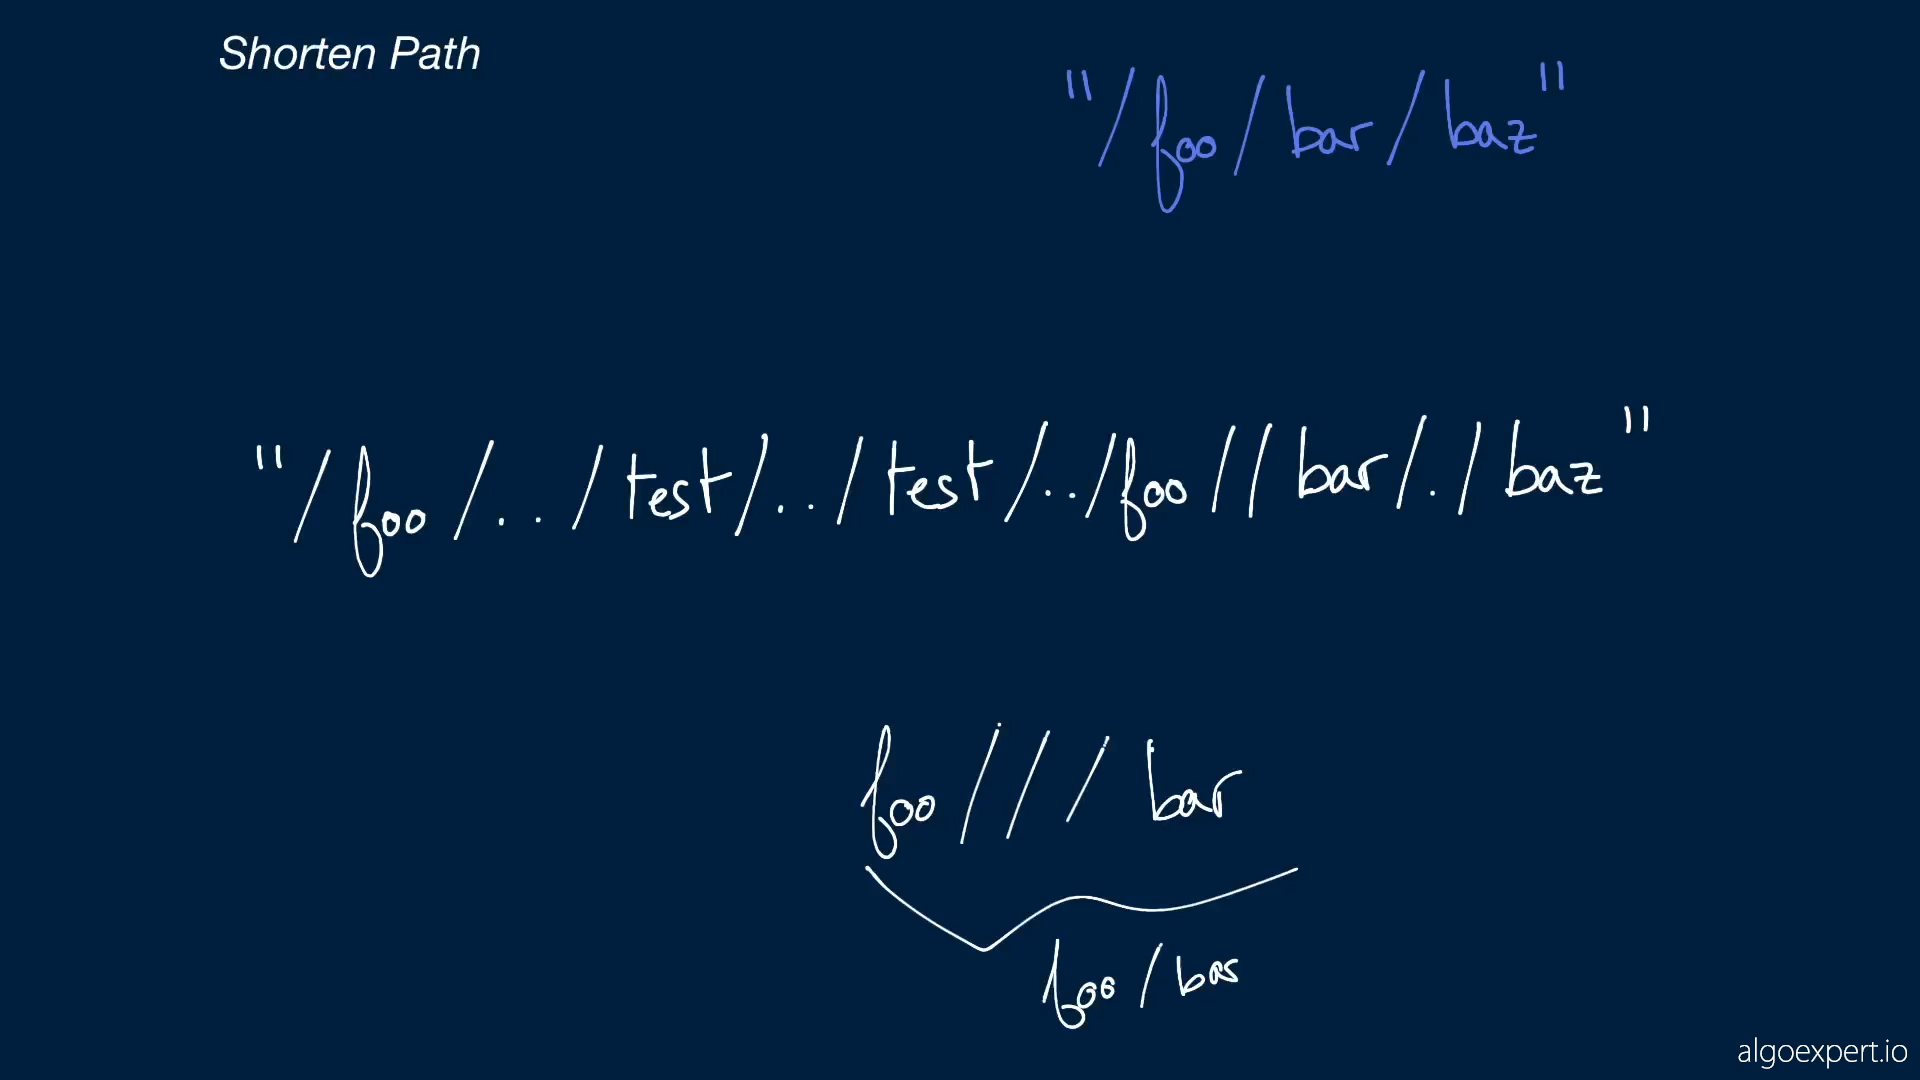 Shorten Path
"/foo/bar/baz"
"/foo/../test/../test/../foo//bar/./baz"
foo///bar
foo/bar
algoexpert.io